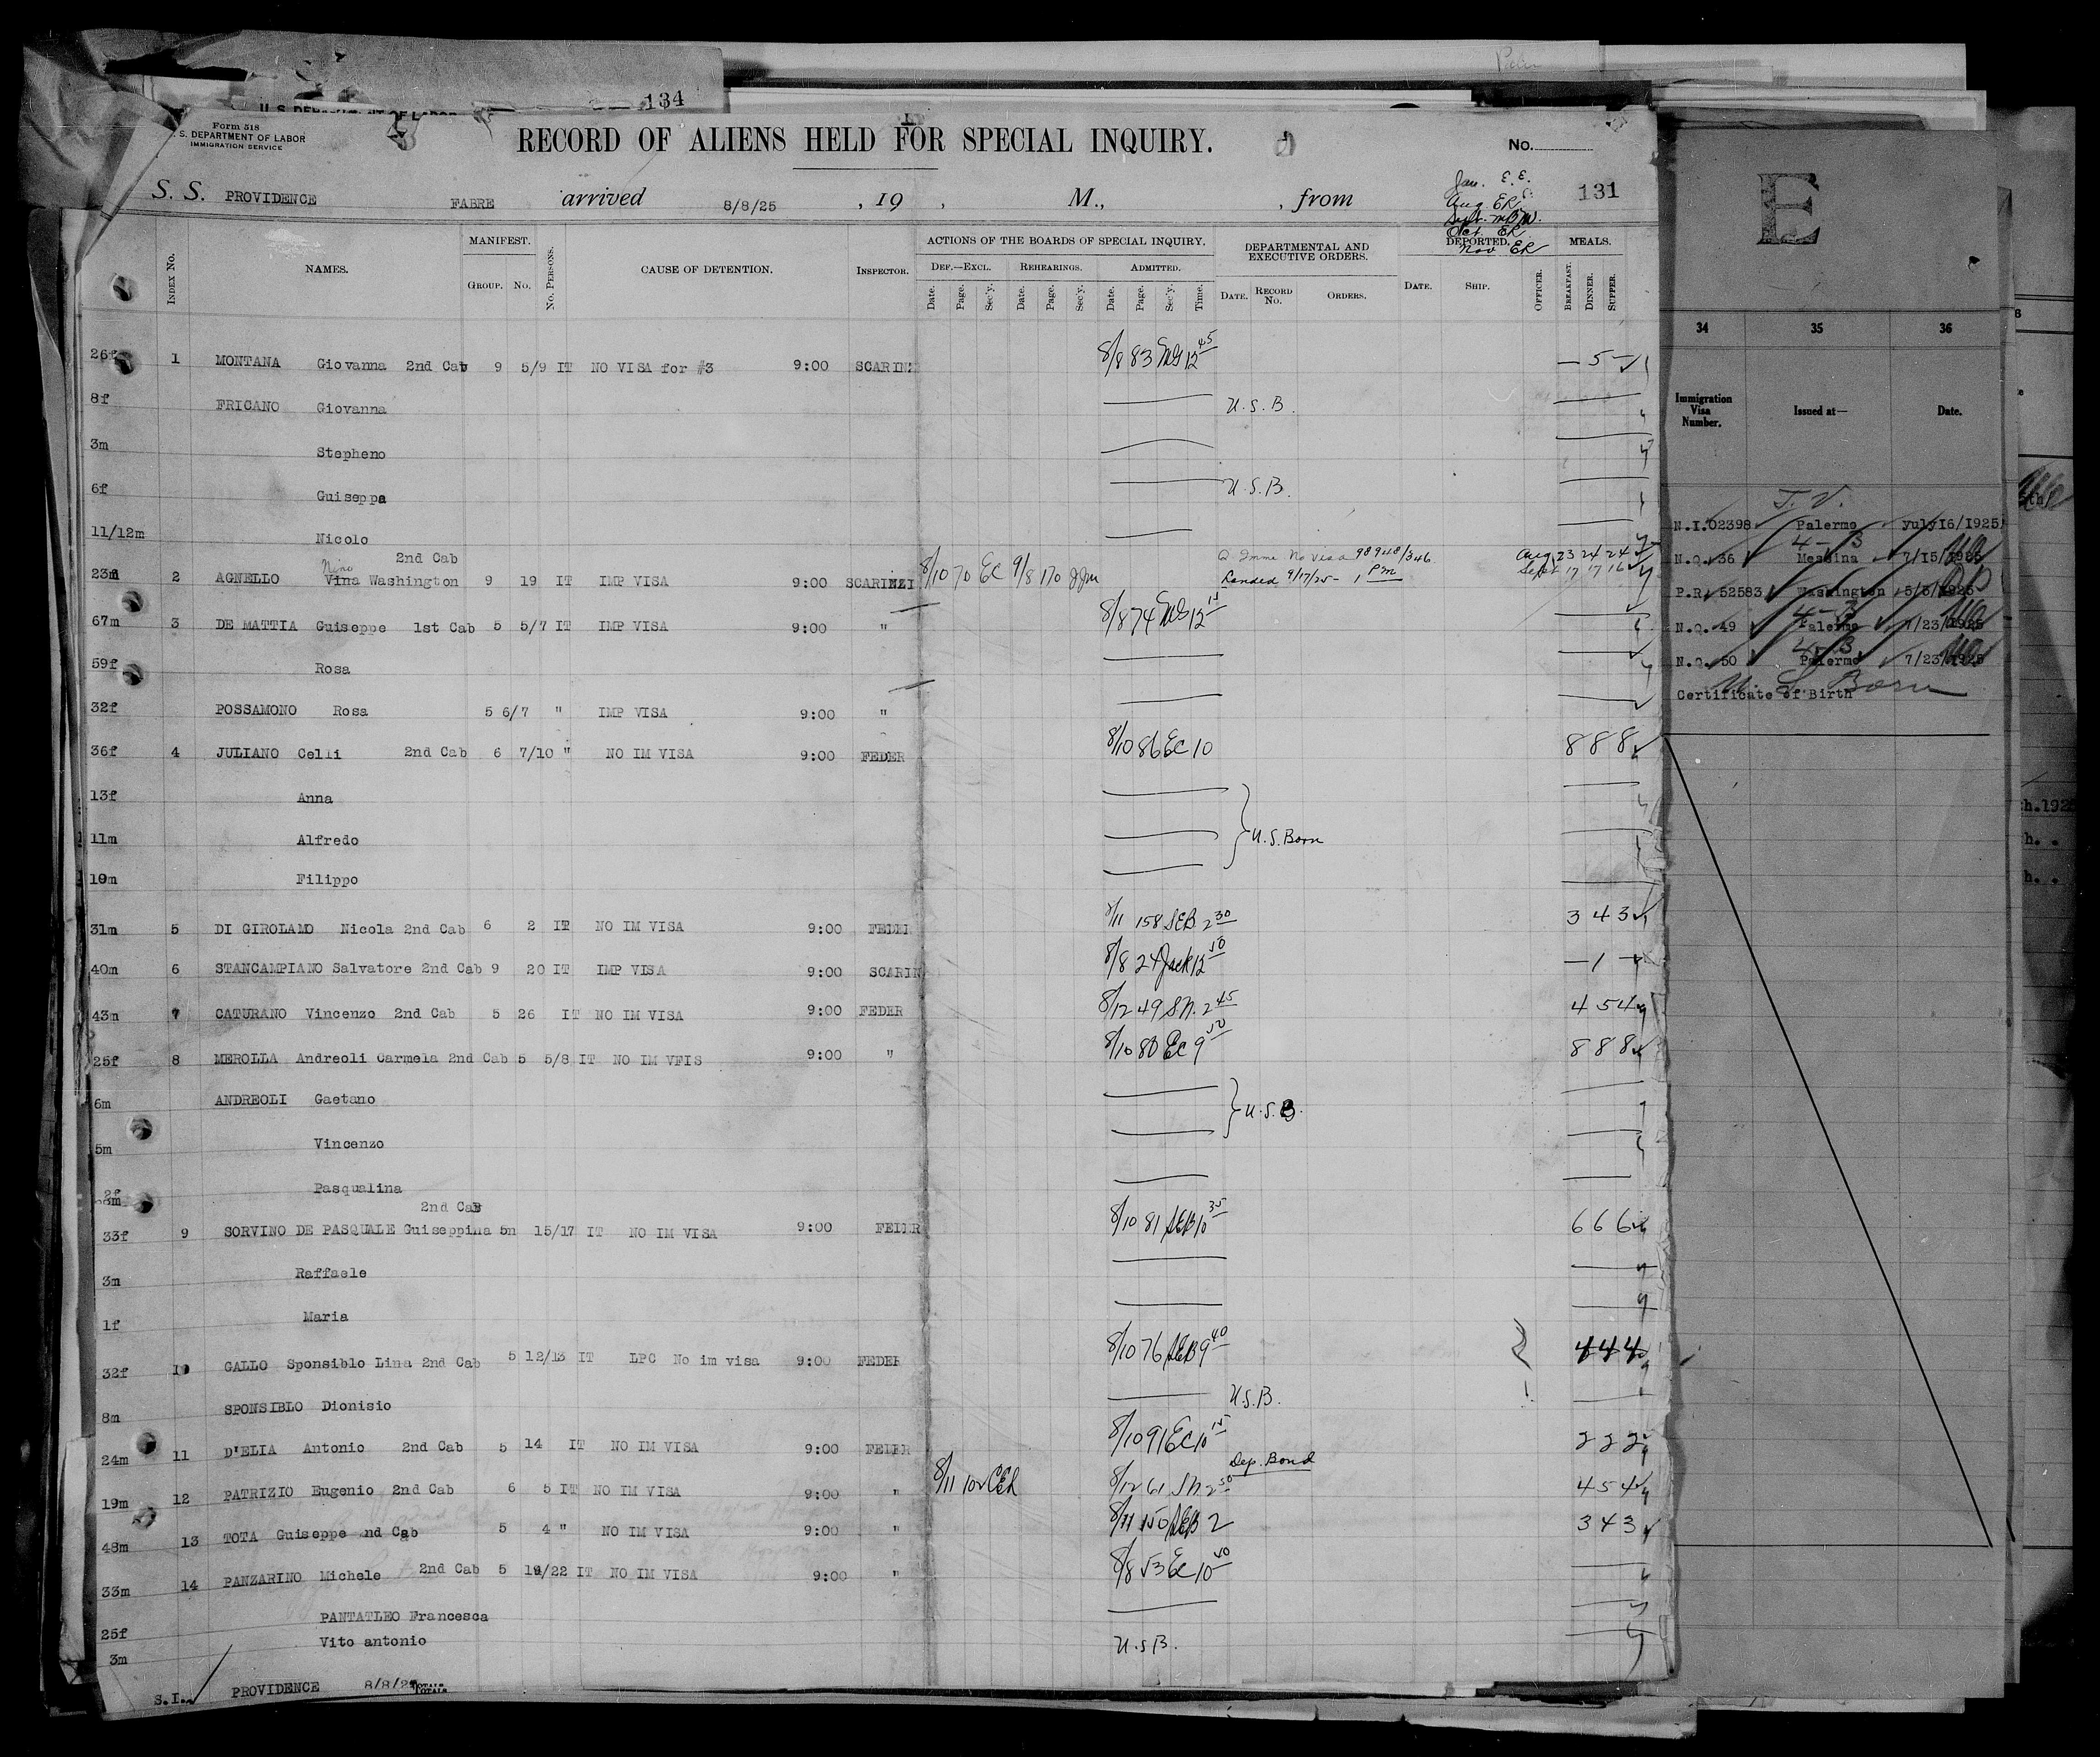 134
Form 518
U. S. DEPARTMENT OF LABOR
IMMIGRATION SERVICE
RECORD OF ALIENS HELD FOR SPECIAL INQUIRY.
No.
S. S. PROVIDENCE FABRE arrived 8/8/25 , 19 , M., , from 131
Jan. E.E.
Aug. ER
Sept. MBW.
Oct. ER
Nov ER
INDEX No. NAMES. MANIFEST. GROUP. No. No. PERSONS. CAUSE OF DETENTION. INSPECTOR. ACTIONS OF THE BOARDS OF SPECIAL INQUIRY. DEPARTMENTAL AND EXECUTIVE ORDERS. DEPORTED. MEALS.
DEF.—EXCL. REHEARINGS. ADMITTED.
Date. Page. Sec'y. Date. Page. Sec'y. Date. Page. Sec'y. Time. DATE. RECORD No. ORDERS. DATE. SHIP. OFFICER. BREAKFAST. DINNER. SUPPER.
26f 1 MONTANA Giovanna 2nd Cab 9 5/9 IT NO VISA for #3 9:00 SCARINZ 8/8 83 MG 12 45 — 5 —
8f FRICANO Giovanna U.S.B.
3m Stepheno
6f Guiseppa U.S.B.
11/12m Nicolo
2nd Cab
Nino
23m 2 AGNELLO Vina Washington 9 19 IT IMP VISA 9:00 SCARINZI 8/10 70 EC 9/8 170 JJM No visa 98948/346 Aug 23 24 24
Landed 9/17/25 - 1 PM Sept 17 17 16
67m 3 DE MATTIA Guiseppe 1st Cab 5 5/7 IT IMP VISA 9:00 " 8/8 74 MG 12 15
59f Rosa
32f POSSAMONO Rosa 5 6/7 " IMP VISA 9:00 "
36f 4 JULIANO Celli 2nd Cab 6 7/10 " NO IM VISA 9:00 FEDER 8/10 86 EC 10 8 8 8
13f Anna
11m Alfredo U.S. Born
10m Filippo
31m 5 DI GIROLAMO Nicola 2nd Cab 6 2 IT NO IM VISA 9:00 FEDER 8/11 158 SEB 2 30 3 4 3
40m 6 STANCAMPIANO Salvatore 2nd Cab 9 20 IT IMP VISA 9:00 SCARIN 8/8 24 Jack 12 50 — 1 —
43m 7 CATURANO Vincenzo 2nd Cab 5 26 IT NO IM VISA 9:00 FEDER 8/12 49 S.N. 2 45 4 5 4
25f 8 MEROLLA Andreoli Carmela 2nd Cab 5 5/8 IT NO IM VFIS 9:00 " 8/10 80 EC 9 50 8 8 8
6m ANDREOLI Gaetano U.S.B.
5m Vincenzo
2f Pasqualina
2nd Cab
33f 9 SORVINO DE PASQUALE Guiseppina 5n 15/17 IT NO IM VISA 9:00 FEDER 8/10 81 SEB 10 35 6 6 6
3m Raffaele
1f Maria
32f 10 GALLO Sponsiblo Lina 2nd Cab 5 12/13 IT LPC No im visa 9:00 FEDER 8/10 76 SEB 9 40 4 4 4
8m SPONSIBLO Dionisio U.S.B.
24m 11 D'ELIA Antonio 2nd Cab 5 14 IT NO IM VISA 9:00 FEDER 8/10 91 EC 10 15 2 2 2
Dep. Bond
19m 12 PATRIZIO Eugenio 2nd Cab 6 5 IT NO IM VISA 9:00 " 8/11 102 CER 8/12 61 SN 2 50 4 5 4
48m 13 TOTA Guiseppe nd Cab 5 4 " NO IM VISA 9:00 " 8/11 150 SEB 2 3 4 3
33m 14 PANZARINO Michele 2nd Cab 5 19/22 IT NO IM VISA 9:00 " 8/8 53 EC 10 50
25f PANTATLEO Francesca
3m Vito antonio U.S.B.
S.I. PROVIDENCE 8/8/25 TOTALS
E
34 35 36
Immigration Visa Number. Issued at— Date.
T. V.
N.I.02398 Palermo July16/1925
4-3
N.Q. 36 Messina 7/15/1925
P.R. 52583 Washington 5/5/1925
4-3
N.Q. 49 Palermo 7/23/1925
4-3
N.Q. 50 Palermo 7/23/1925
U. S. Born
Certificate of Birth